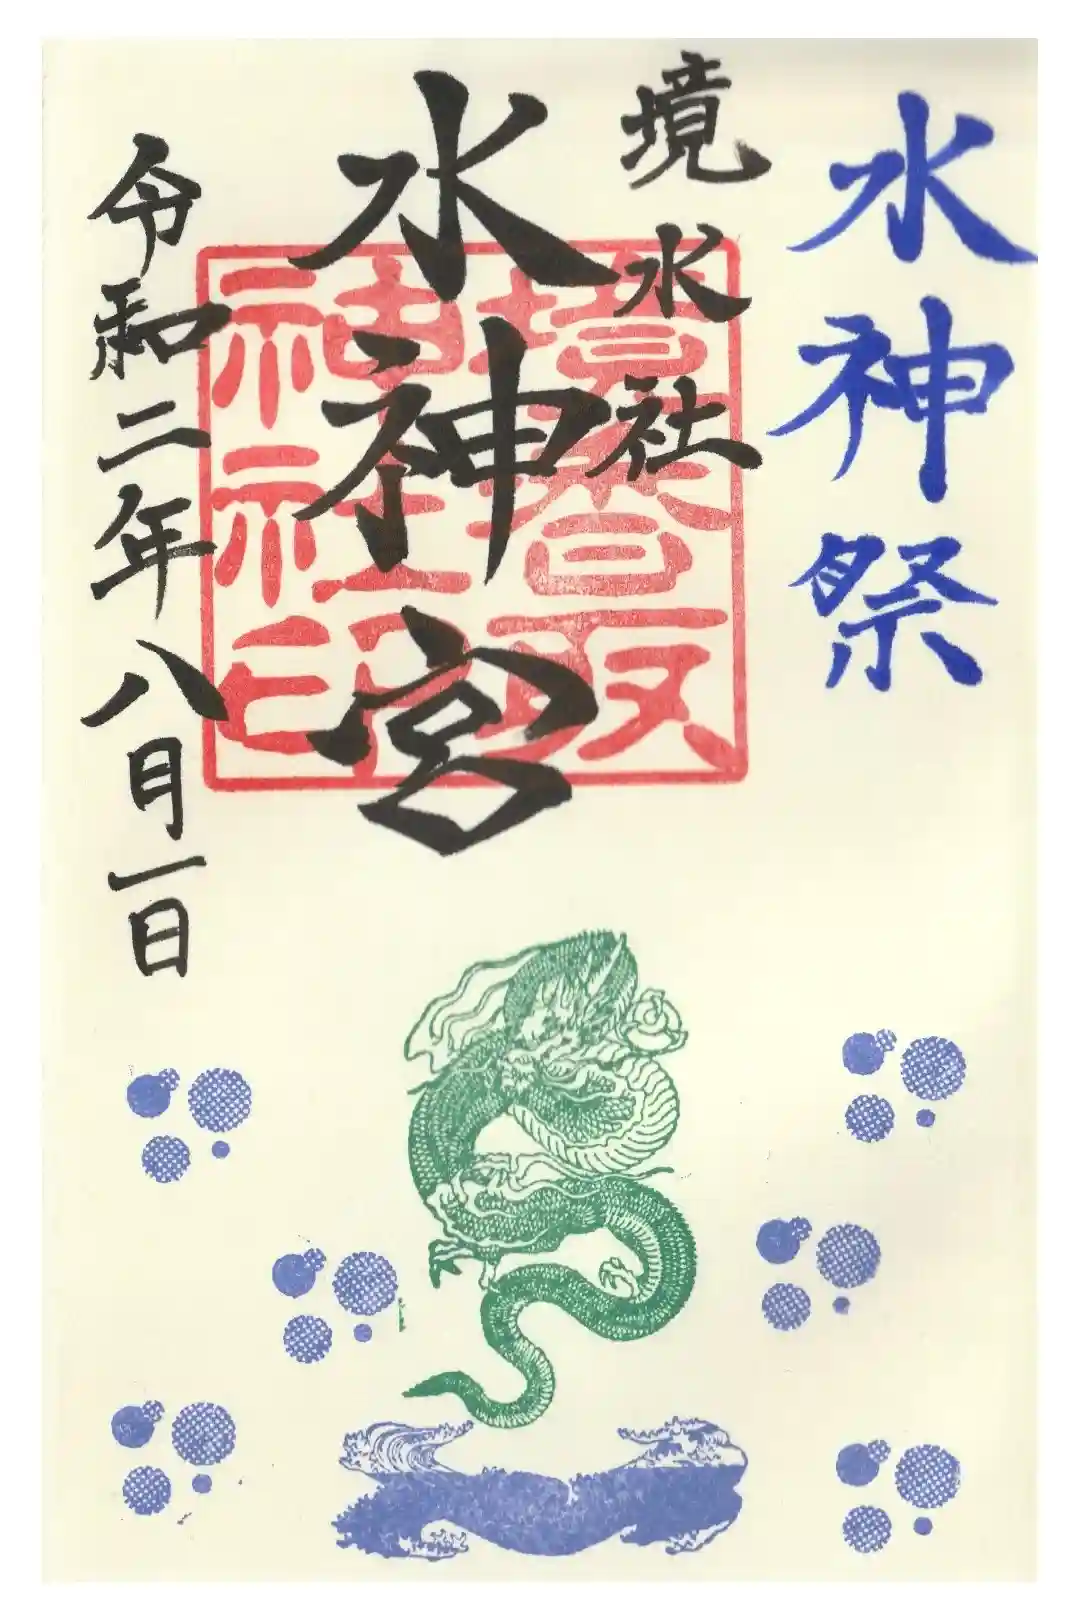 水神祭
境水社
水神宮
令和二年八月一日
境香取
神社印